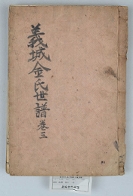 義城金氏世譜 卷三